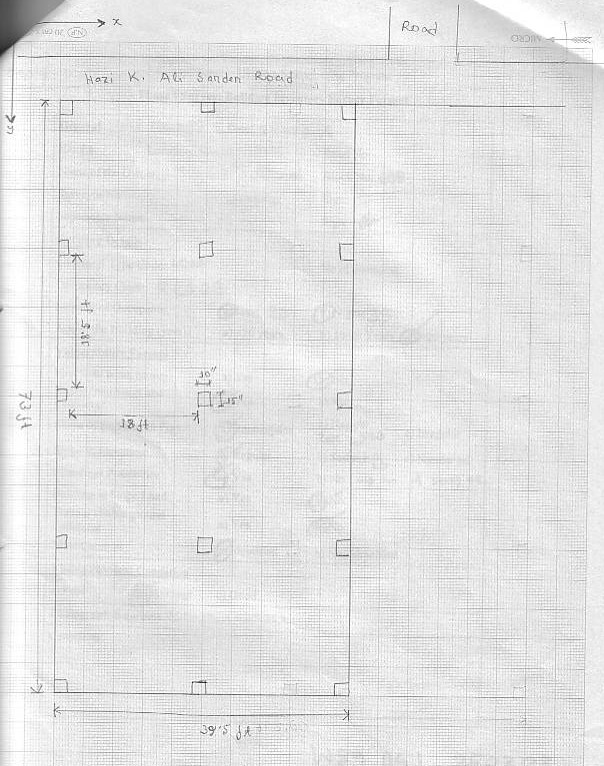 x
Road
Hazi K. Ali Sarden Road
18.5 ft
10"
15"
18 ft
73 ft